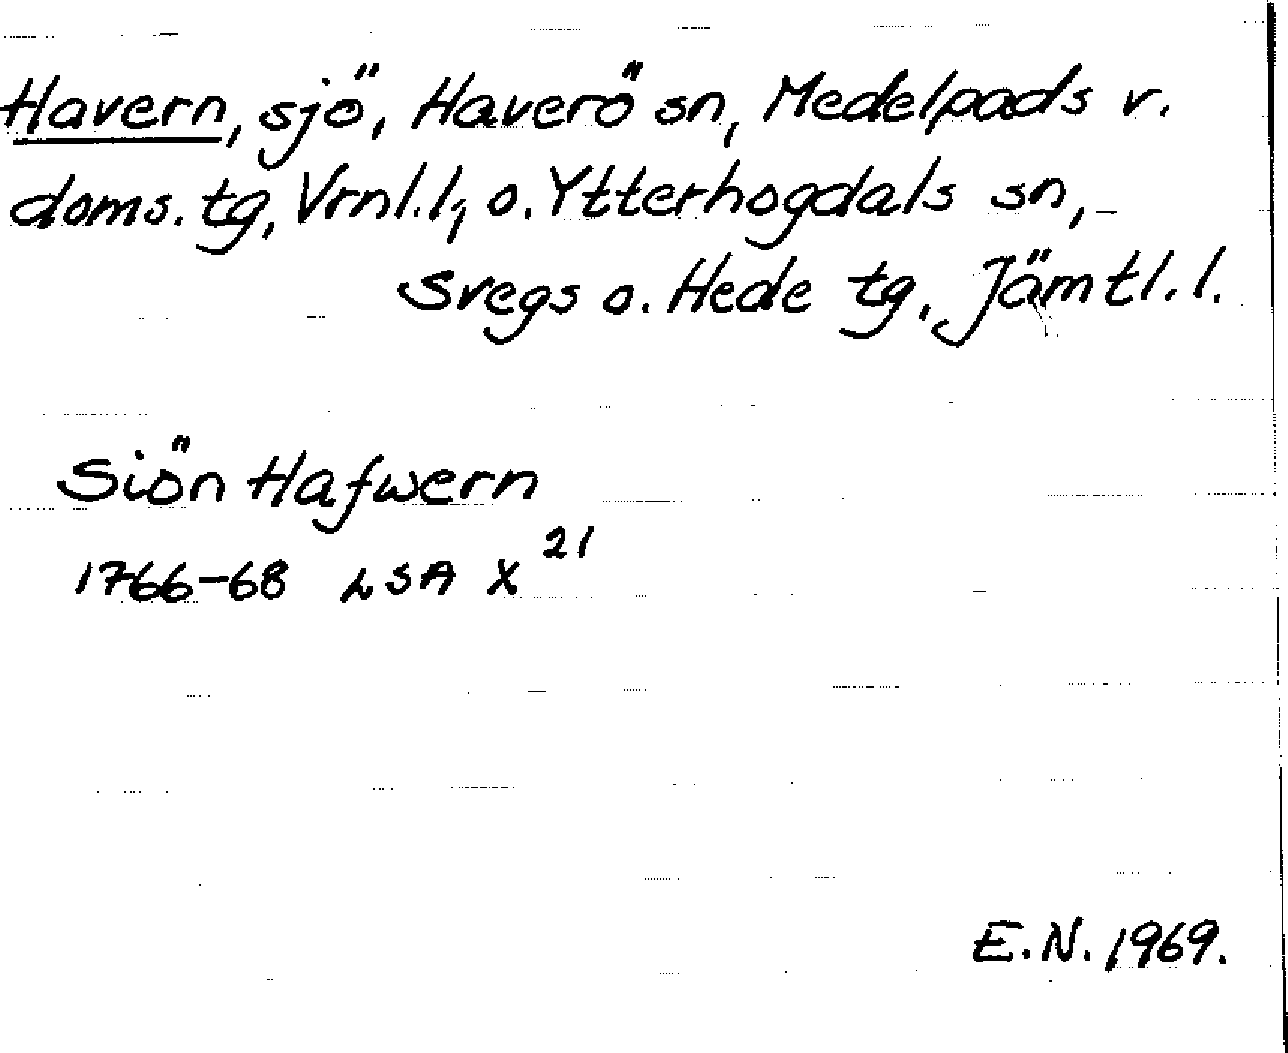 Havern, sjö, Haverö sn, Medelpads v.
doms. tg, Vrnl. l, o. Ytterhogdals sn,
Svegs o. Hede tg, Jämtl. l.
Siön Hafwern
1766-68 LSA X 21
E.N. 1969.